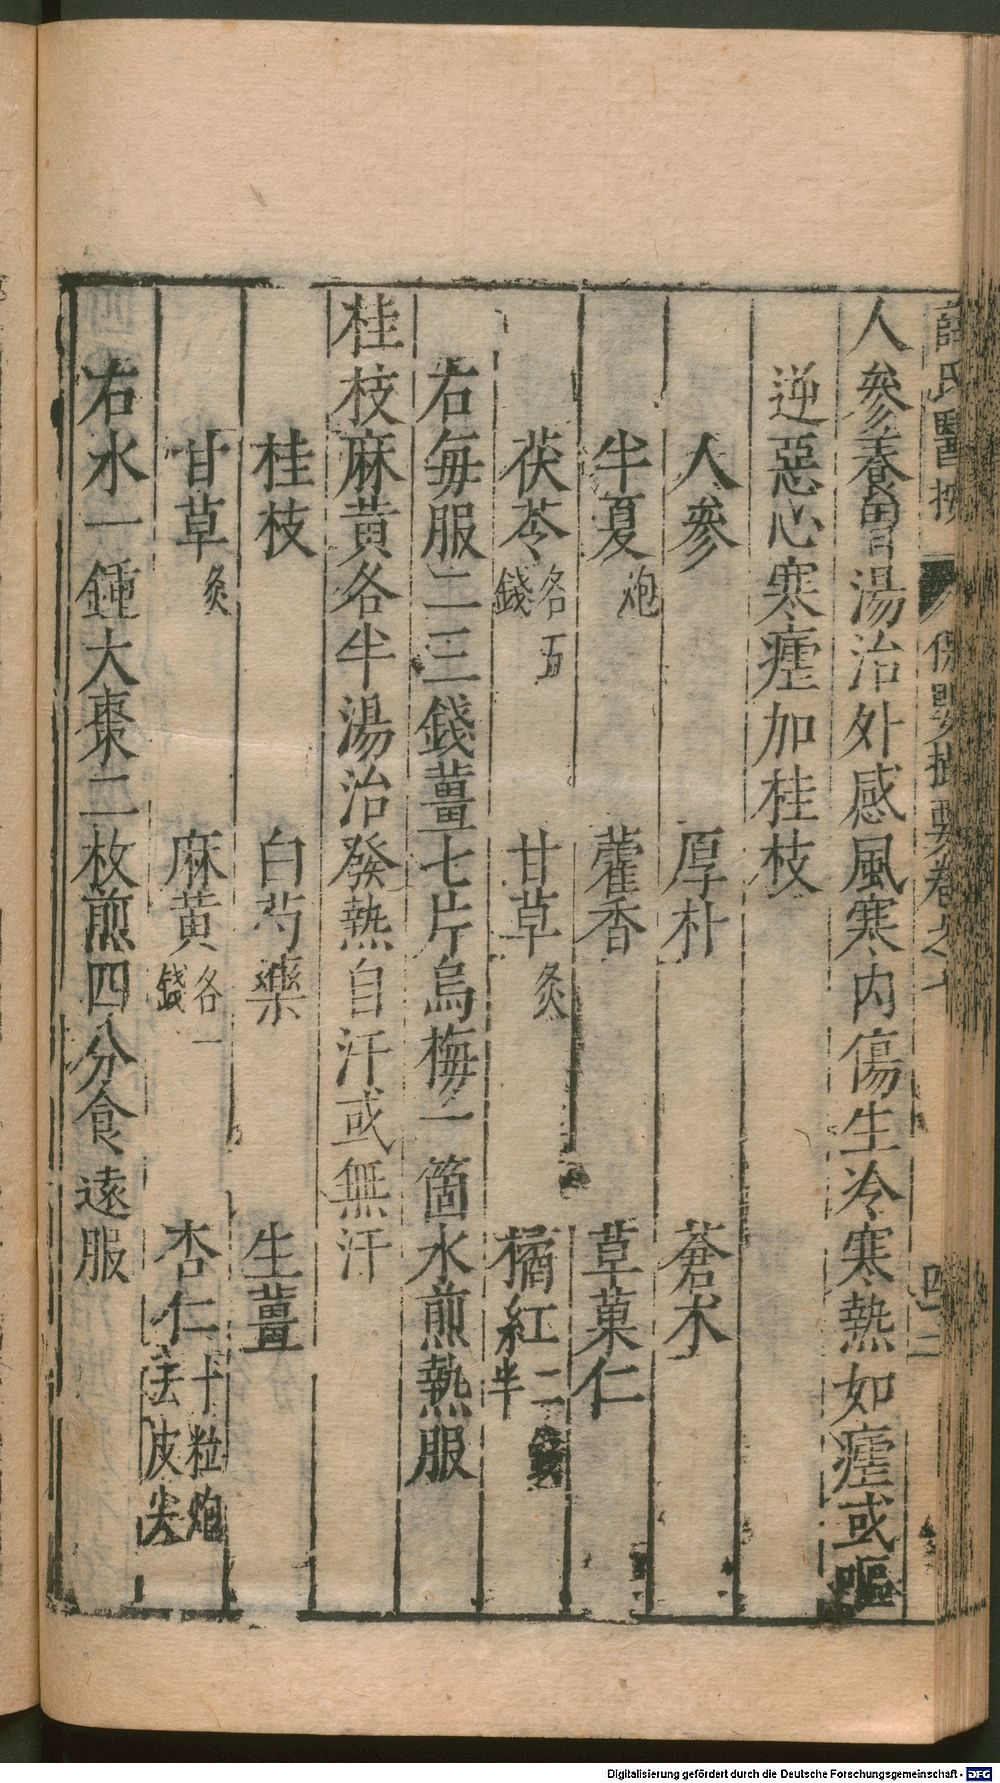 薛氏醫按 保嬰撮要卷之七 四十二
人參養胃湯治外感風寒內傷生冷寒熱如瘧或嘔
逆惡心寒瘧加桂枝
人參 厚朴 蒼朮
半夏炮 藿香 草菓仁
茯苓各五錢 甘草炙 橘紅二錢半
右每服二三錢薑七片烏梅一箇水煎熱服
桂枝麻黃各半湯治發熱自汗或無汗
桂枝 白芍藥 生薑
甘草炙 麻黃各一錢 杏仁十粒炮去皮尖
右水一鍾大棗二枚煎四分食遠服
Digitalisierung gefördert durch die Deutsche Forschungsgemeinschaft - DFG